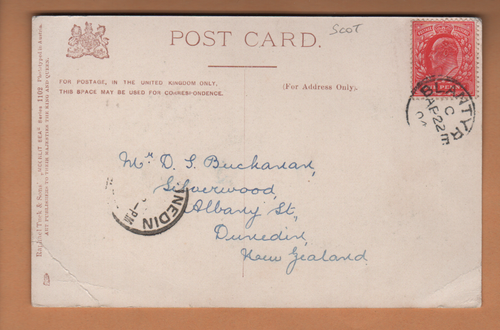 Scot
POST CARD.
FOR POSTAGE, IN THE UNITED KINGDOM ONLY,
THIS SPACE MAY BE USED FOR CORRESPONDENCE.
(For Address Only).
BLANTYRE
C
AP 22
Mr D. S. Buchanan,
Silverwood,
Albany St,
Dunedin,
New Zealand
NEDIN
PM
Raphael Tuck & Sons' "OILETTE"
ART PUBLISHERS TO THEIR MAJESTIES THE KING AND QUEEN.